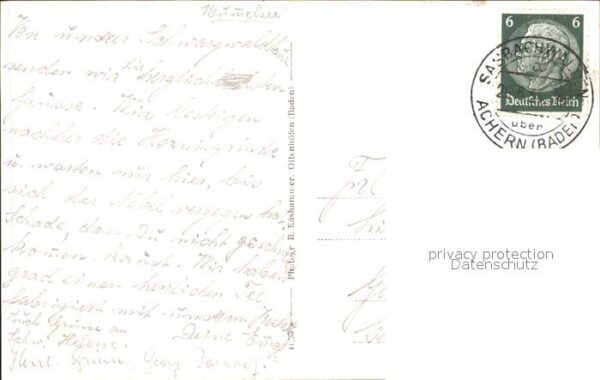 Mummelsee
Von unserer Schwarzwaldtour
senden wir die herzlichsten
Grüsse. Wir besteigen
nachher die Hornisgrinde
u. warten nur hier, bis
sich der Nebel verzogen hat.
Schade, dass Du nicht
kommen kannst. Wir haben
grad einen herrlichen Tee
fabriziert mit unserem
auch Grüsse an Deine
Herzl. Grüsse Georg
Phot. Lagr B. Kashammer, Ottenhöfen (Baden)
Frl
6 6
Deutsches Reich
SASBACHWALDEN
über
ACHERN (BADEN)
privacy protection
Datenschutz